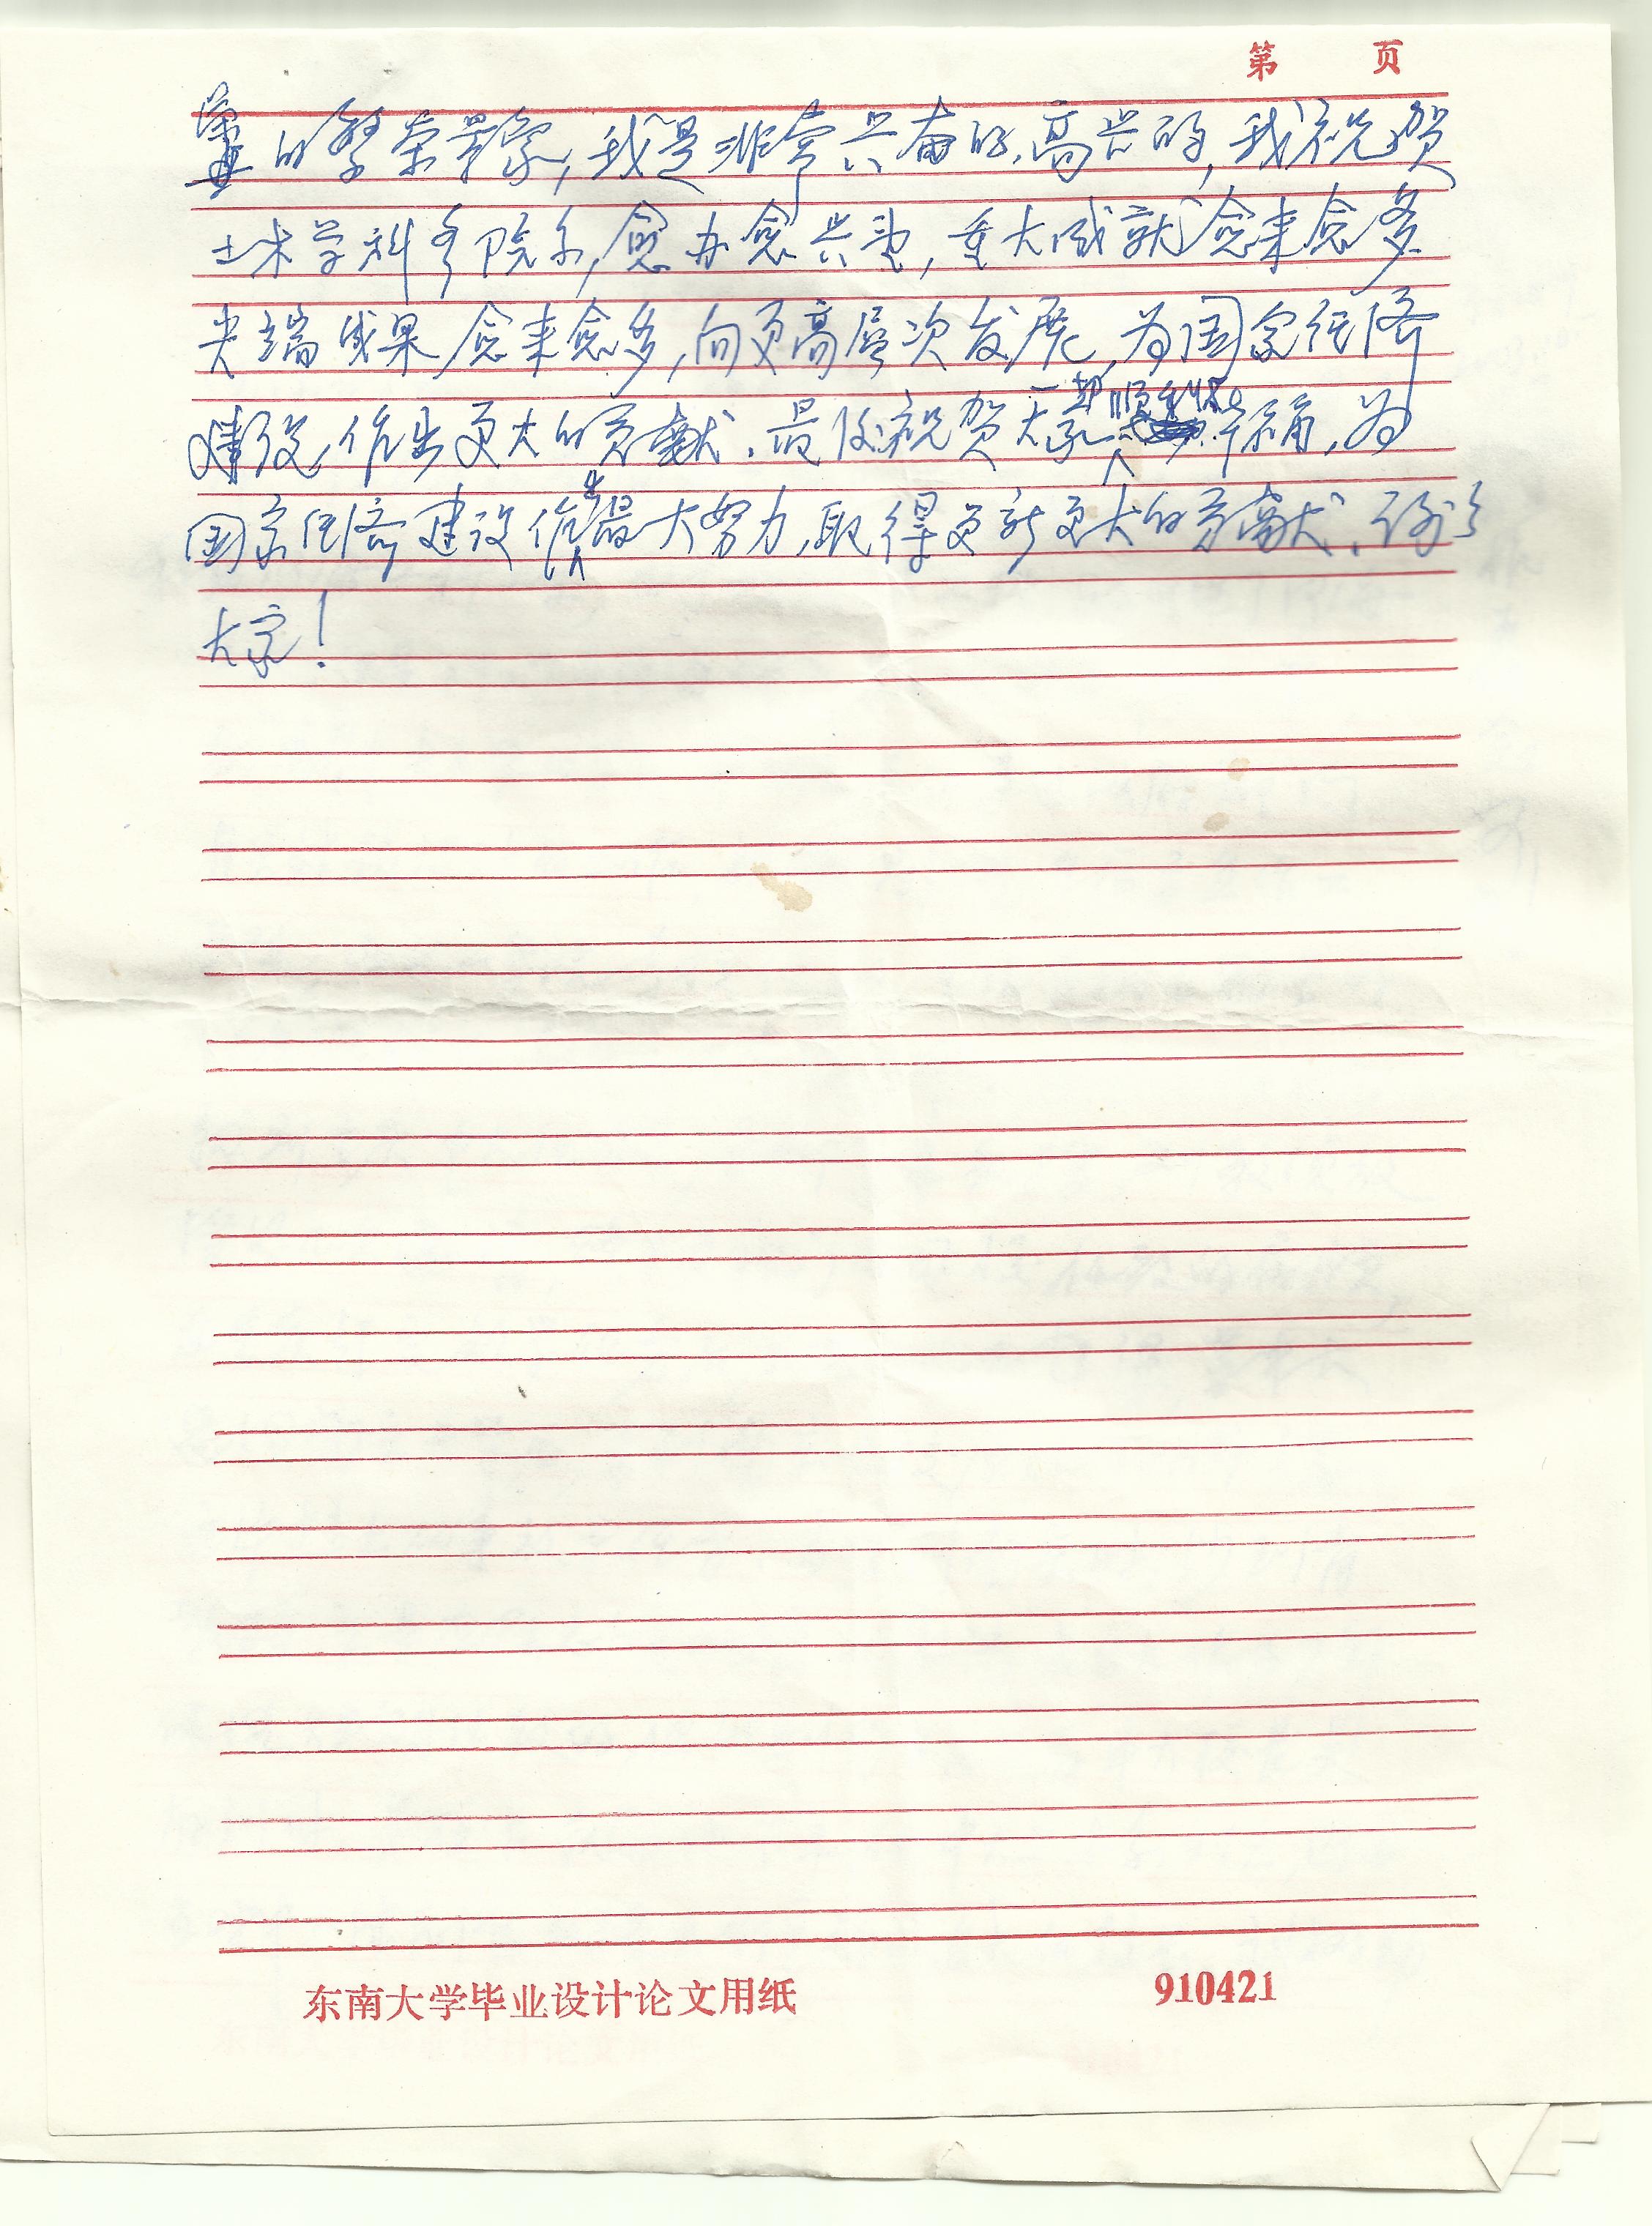 第 页
的繁荣景象,我是非常兴奋的,高兴的,我祝贺
土木学科各院系,愈办愈兴旺,重大成就愈来愈多
尖端成果愈来愈多,向更高层次发展,为国家经济
建设,作出更大的贡献.最后祝贺大家一切顺利幸福,为
国家经济建设作出最大努力,取得更新更大的贡献、谢谢
大家!
东南大学毕业设计论文用纸 910421